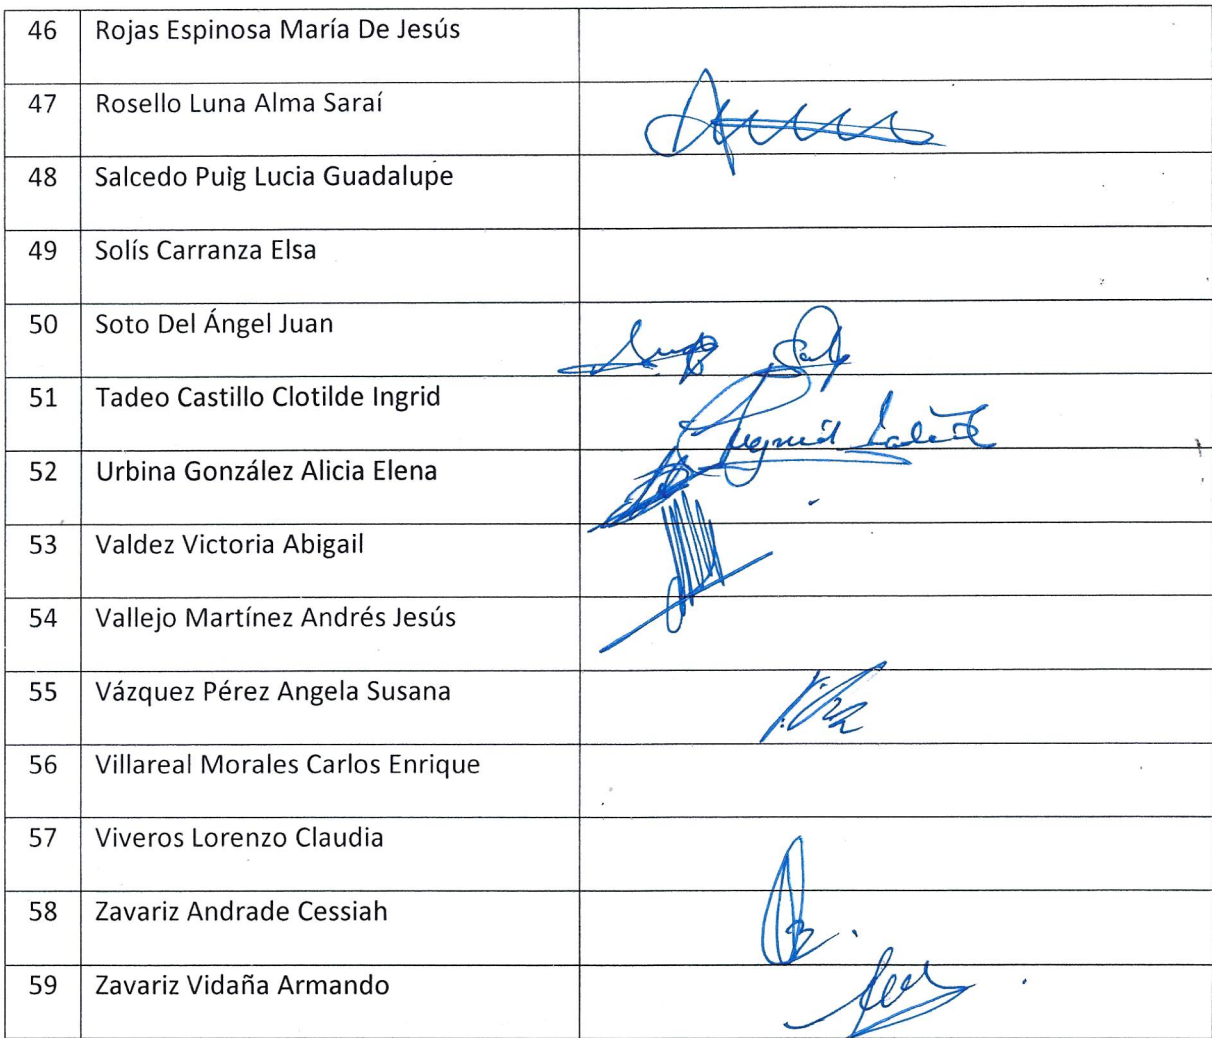 46 Rojas Espinosa María De Jesús
47 Rosello Luna Alma Saraí
48 Salcedo Puig Lucia Guadalupe
49 Solís Carranza Elsa
50 Soto Del Ángel Juan
51 Tadeo Castillo Clotilde Ingrid
52 Urbina González Alicia Elena
53 Valdez Victoria Abigail
54 Vallejo Martínez Andrés Jesús
55 Vázquez Pérez Angela Susana
56 Villareal Morales Carlos Enrique
57 Viveros Lorenzo Claudia
58 Zavariz Andrade Cessiah
59 Zavariz Vidaña Armando